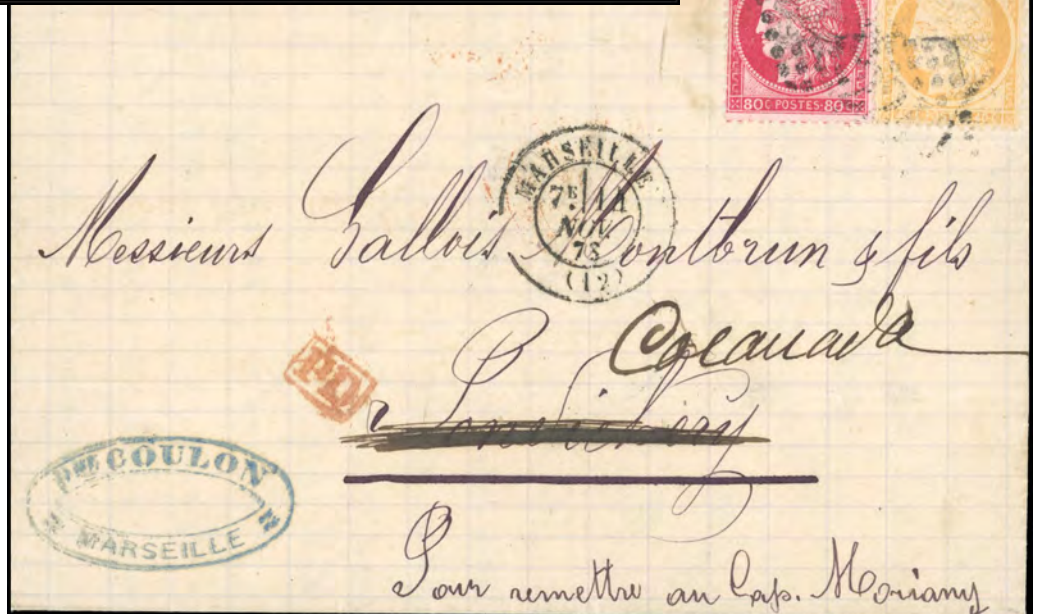 80C POSTES 80C
MARSEILLE
7E 11
NOV.
(12)
Messieurs Gallois Montbrun & fils
Cocanada
Pondichéry
PD
COULON
MARSEILLE
Pour remettre au Cap. Moriany